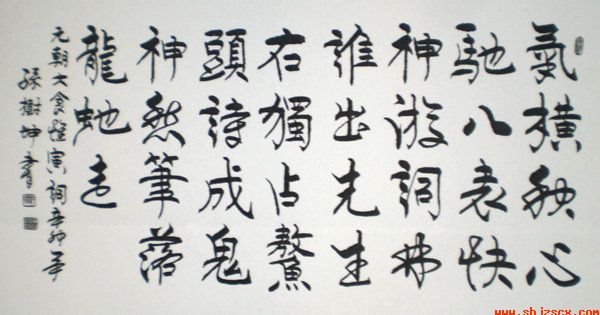 氣橫秋心
馳八表快
神游詞林
誰出先生
右獨占鰲
頭詩成鬼
神愁筆落
龍蛇走
元朝大食惟寅詞辛卯年
孫樹坤書
www.shizscx.com